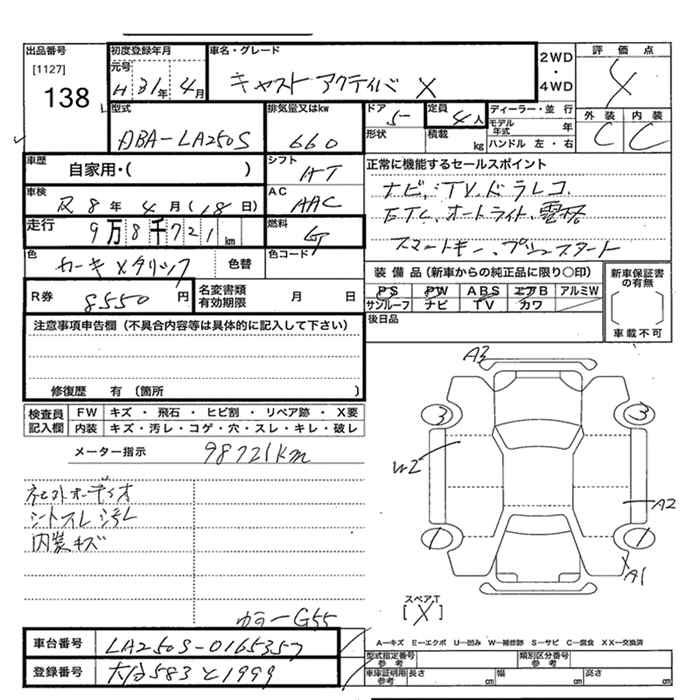 出品番号
[1127]
138
初度登録年月
元号
H 31年 4月
車名・グレード
キャスト アクティバ X
2WD
・
4WD
評価点
外装 内装
C C
型式
DBA-LA250S
排気量又はkw
660
ドア
5
形状
定員
4人
積載 kg
ディーラー・並行
モデル年式 年
ハンドル 左・右
車歴
自家用・( )
シフト
AT
正常に機能するセールスポイント
ナビ、TV、ドラレコ
ETC、オートライト、電格
スマートキー、プッシュスタート
車検
R 8年 4月 (18日)
AC
AAC
走行
9万8千721km
燃料
G
色
カーキメタリック
色替
色コード
R券
8550円
名変書類
有効期限
月 日
装備品 (新車からの純正品に限り○印)
PS PW ABS エアB アルミW
サンルーフ ナビ TV カワ
後日品
新車保証書
の有無
車載不可
注意事項申告欄 (不具合内容等は具体的に記入して下さい)
修復歴 有 (箇所 )
検査員
記入欄
FW キズ・飛石・ヒビ割・リペア跡・X要
内装 キズ・汚レ・コゲ・穴・スレ・キレ・破レ
メーター指示
98721km
シートスレ 汚レ
内装キズ
カラーG55
A3
3 3
W2
A2
1 1
A1
スペアT
[X]
A―キズ E―エクボ U―凹み W―補修跡 S―サビ C―腐食 XX―交換済
車台番号
LA250S-0165357
登録番号
大分583 と1999
型式指定番号
参考
類別区分番号
参考
車庫証明用
参考
長さ cm
幅 cm
高さ cm